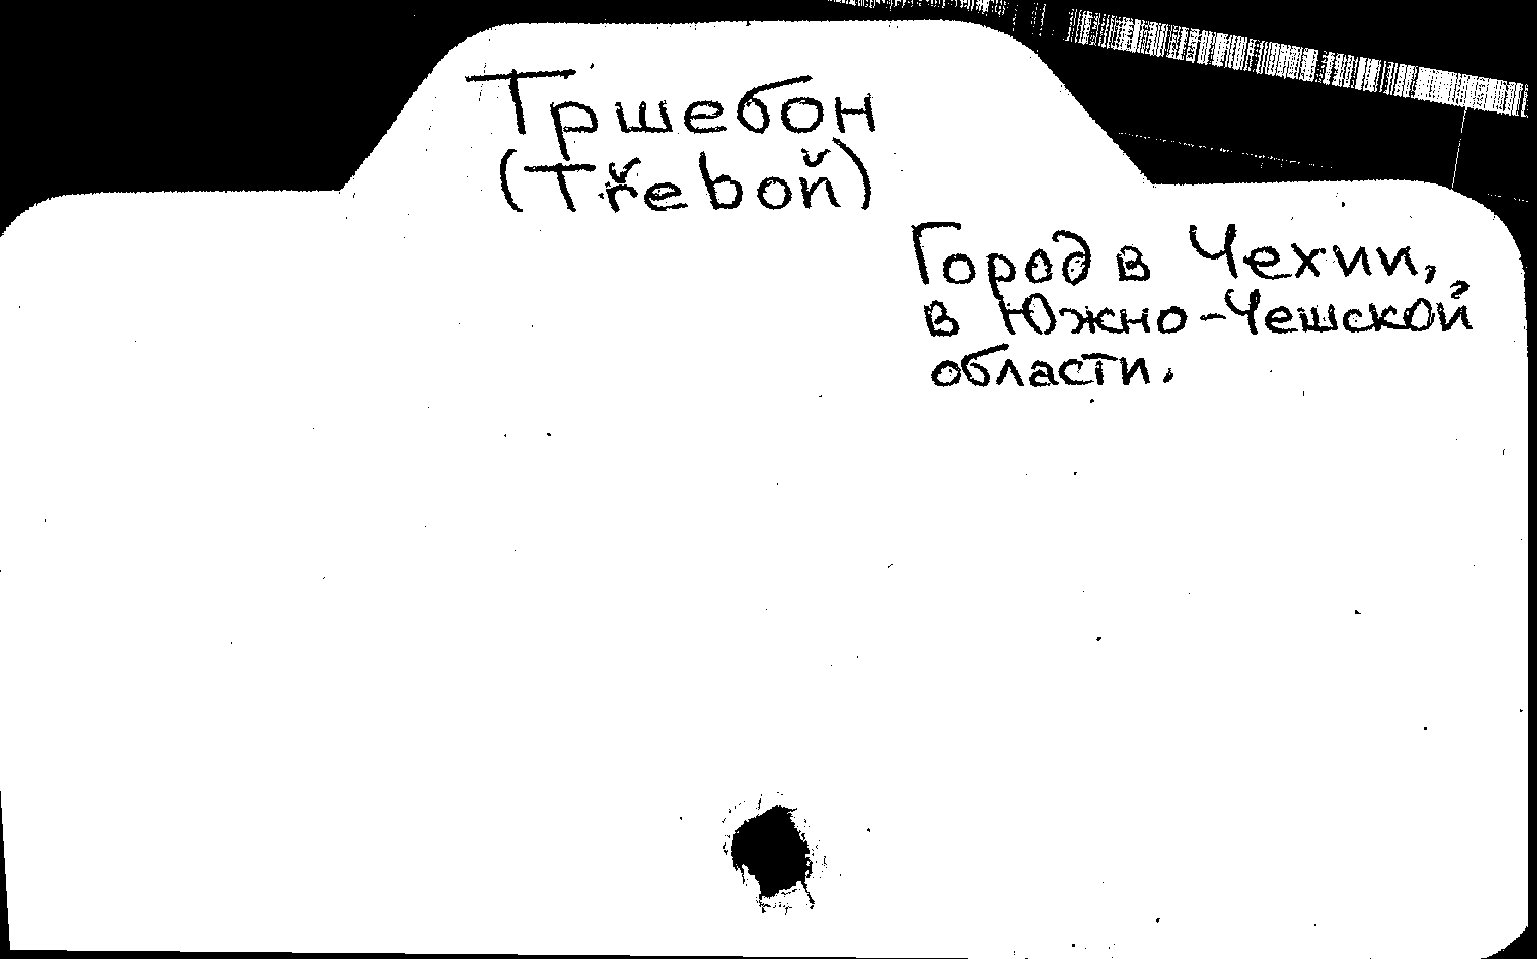 Тршебон
(Třeboň)
Город в Чехии,
в Южно-Чешской
области.